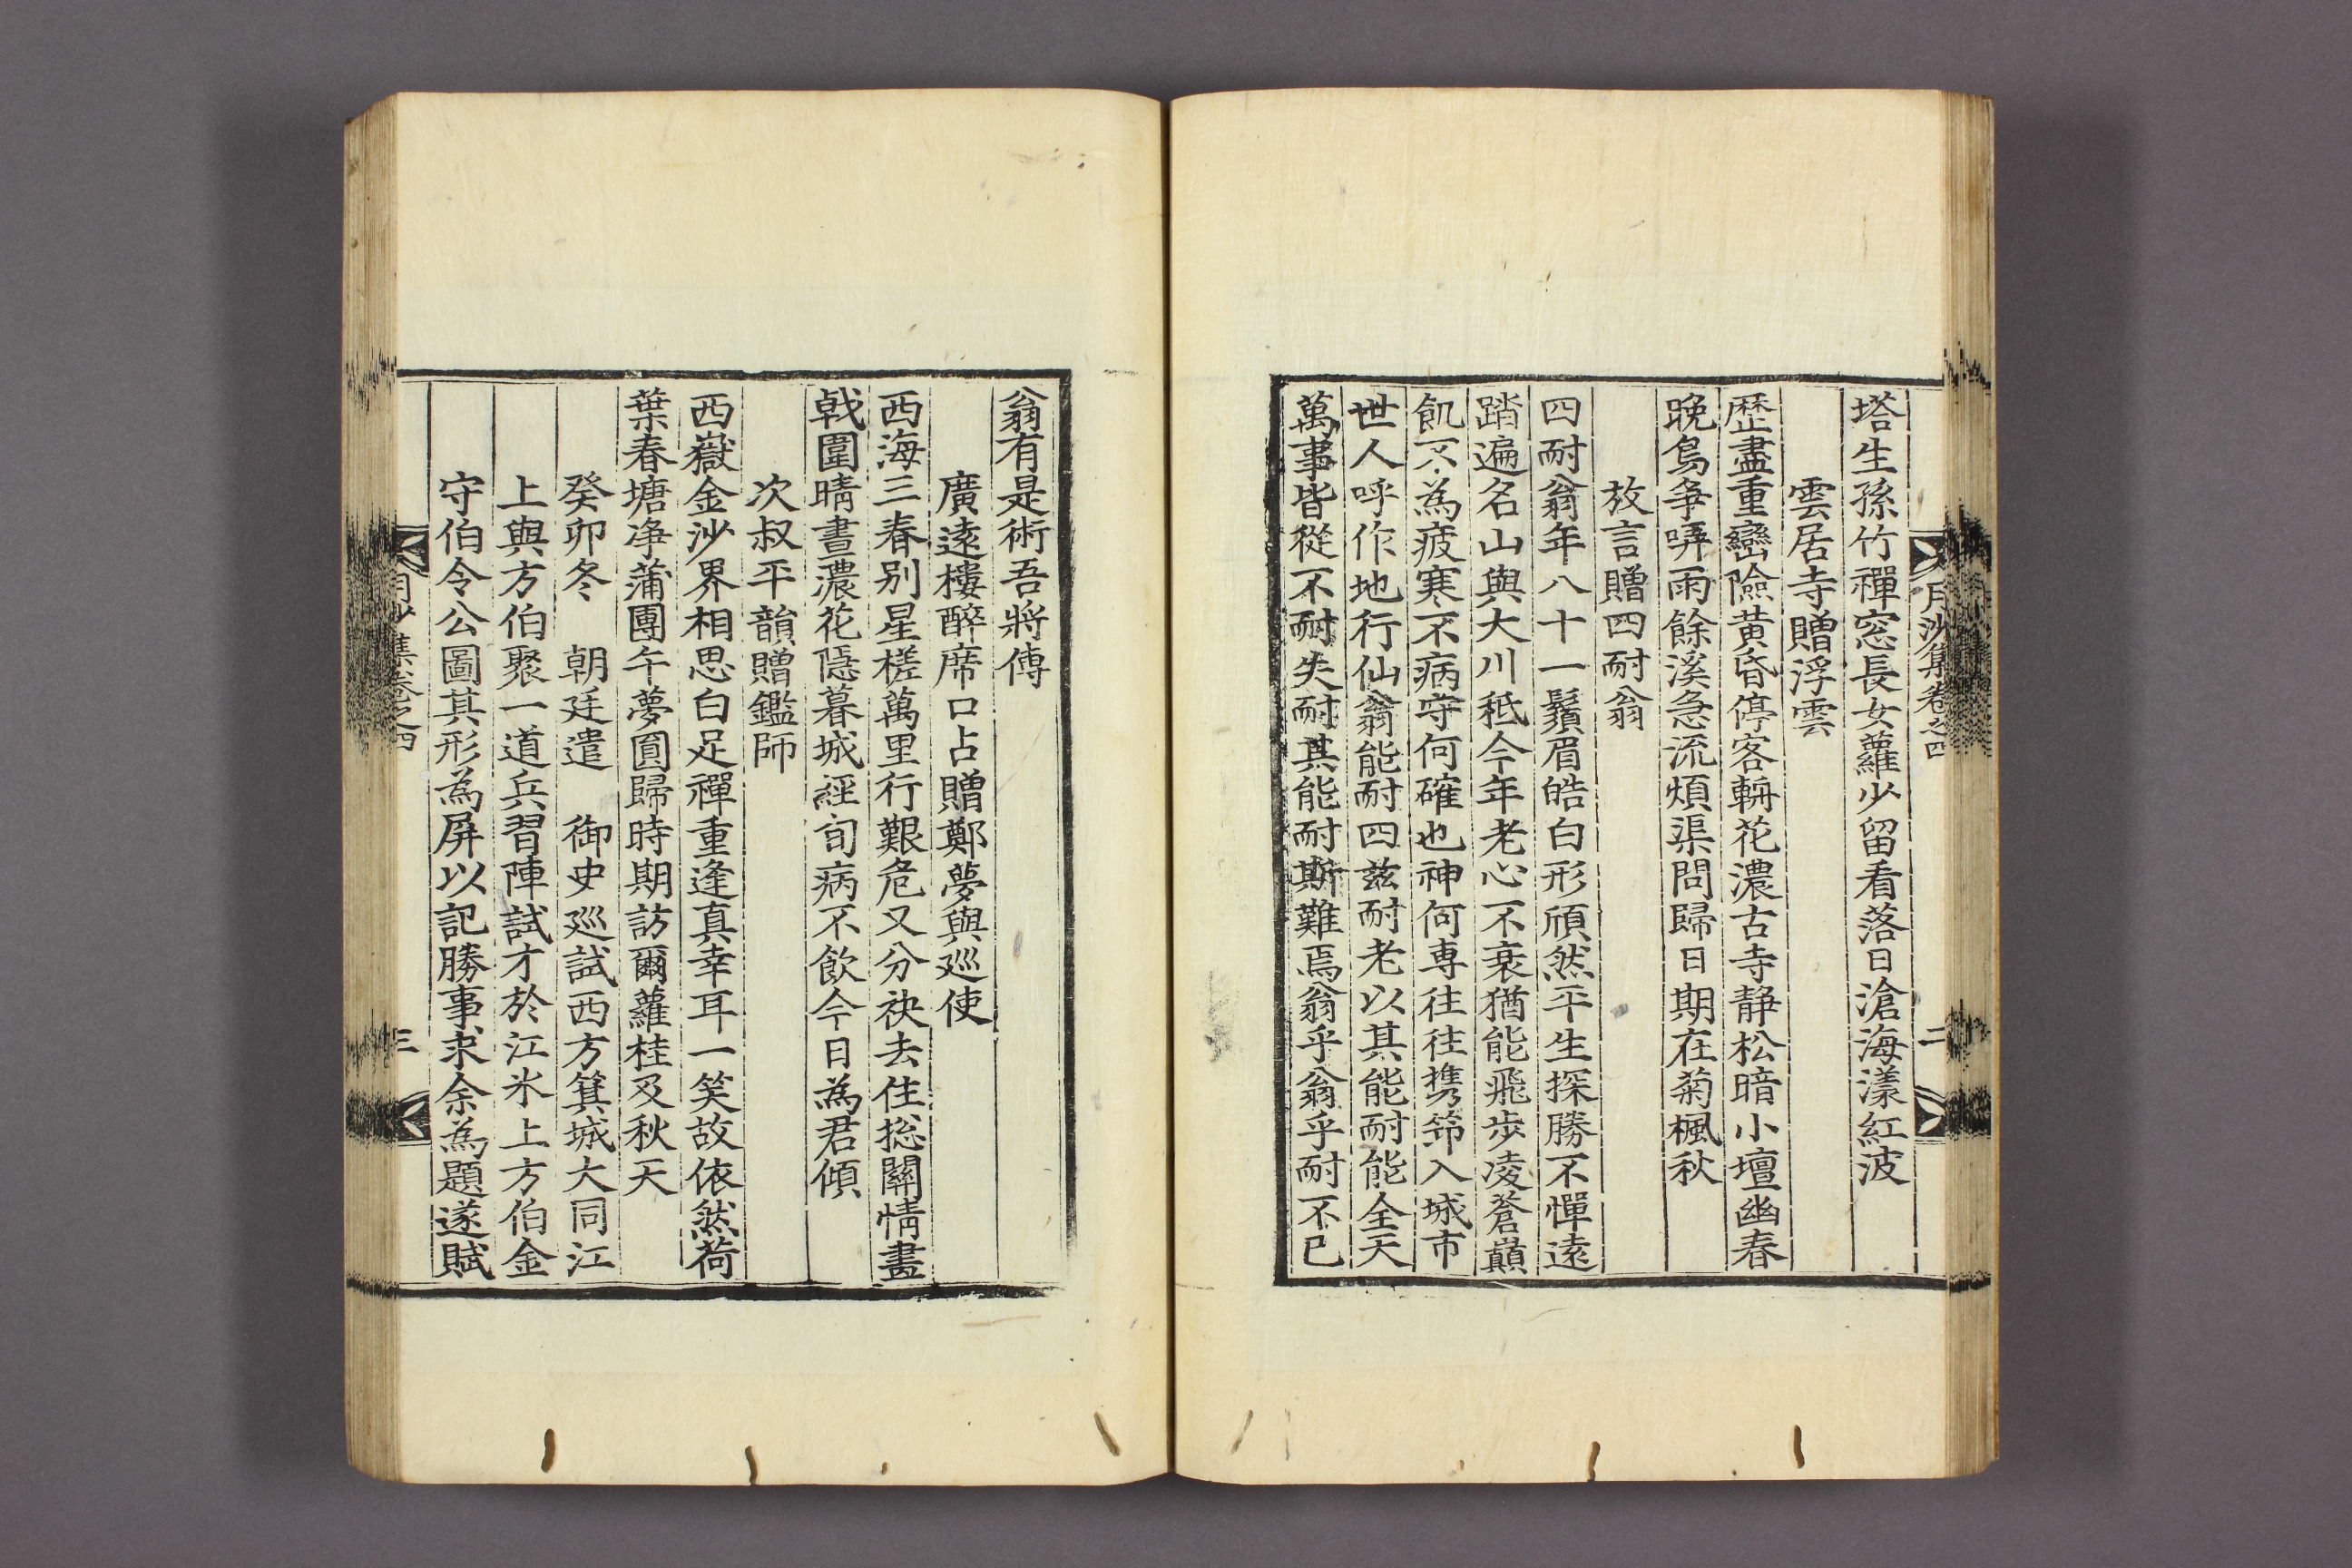 月沙集卷之四
二
塔生孫竹禪窓長女蘿少留看落日滄海漾紅波
雲居寺贈浮雲
歷盡重巒險黃昏停客輧花濃古寺靜松暗小壇幽春
晚鳥爭哢雨餘溪急流煩渠問歸日期在菊楓秋
放言贈四耐翁
四耐翁年八十一鬚眉皓白形頎然平生探勝不憚遠
踏遍名山與大川秪今年老心不衰猶能飛步凌蒼巔
飢不為疲寒不病守何確也神何專往往携笻入城市
世人呼作地行仙翁能耐四玆耐老以其能耐能全天
萬事皆從不耐失耐其能耐斯難焉翁乎翁乎耐不已
翁有是術吾將傳
廣遠樓醉席口占贈鄭夢與巡使
西海三春别星槎萬里行艱危又分袂去住摠關情畫
戟圍晴晝濃花隱暮城經旬病不飲今日為君傾
次叔平韻贈鑑師
西嶽金沙界相思白足禪重逢真幸耳一笑故依然荷
葉春塘净蒲團午夢圓歸時期訪爾蘿桂及秋天
癸卯冬　朝廷遣　御史巡試西方箕城大同江
上與方伯聚一道兵習陣試才於江氷上方伯金
守伯令公圖其形為屏以記勝事求余為題遂賦
月沙集卷之四
三